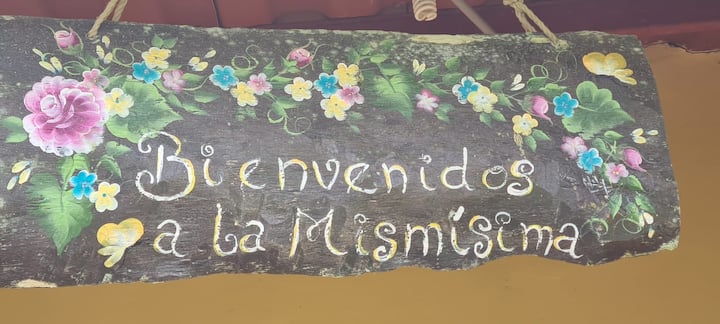 Bienvenidos
a la Mismísima